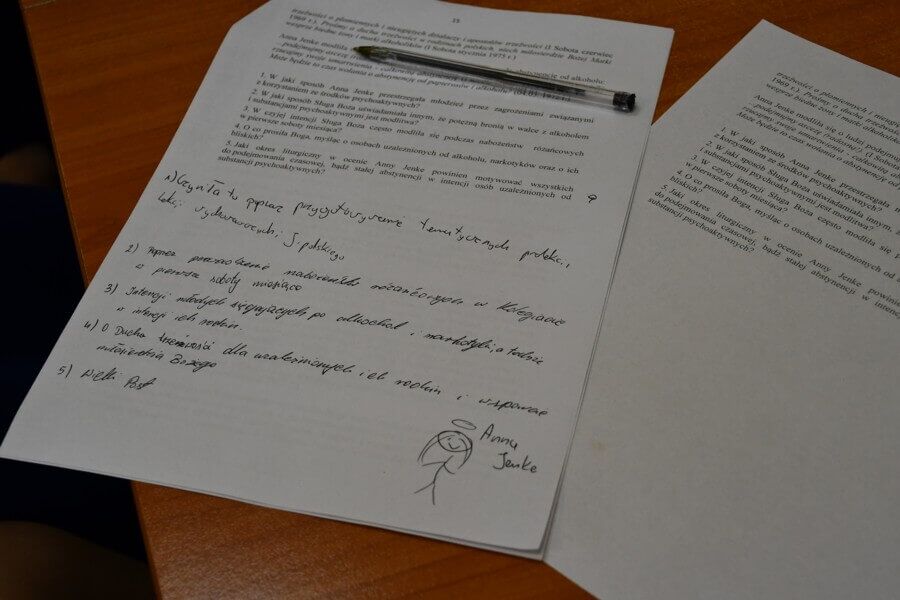 15
trzeźwości o płomiennych i nieugiętych działaczy i apostołów trzeźwości (I Sobota czerwiec
1969 r.). Prośmy o ducha trzeźwości w rodzinach polskich, niech miłosierdzie Bożej Matki
wesprze biedne żony i matki alkoholików (I Sobota stycznia 1975 r.)
Anna Jenke modliła abstynencję od alkoholu:
Może będzie to czas wołania o abstynencję od papierosów i alkoholu? (04.03.1972 r.).
1. W jaki sposób Anna Jenke przestrzegała młodzież przez zagrożeniami związanymi
z korzystaniem ze środków psychoaktywnych?
2. W jaki sposób Sługa Boża uświadamiała innym, że potężną bronią w walce z alkoholem
i substancjami psychoaktywnymi jest modlitwa?
3. W czyjej intencji Sługa Boża często modliła się podczas nabożeństw różańcowych
w pierwsze soboty miesiąca?
4. O co prosiła Boga, myśląc o osobach uzależnionych od alkoholu, narkotyków oraz o ich
bliskich?
5. Jaki okres liturgiczny w ocenie Anny Jenke powinien motywować wszystkich
do podejmowania czasowej, bądź stałej abstynencji w intencji osób uzależnionych od
substancji psychoaktywnych?
1) Czyniła to poprzez przygotowywanie tematycznych prelekcji
lekcji wychowawczych i j. polskiego
2) Poprzez prowadzenie nabożeństw różańcowych w Kolegiacie
w pierwsze soboty miesiąca
3) Intencji młodych sięgających po alkohol i narkotyki, a także
w intencji ich rodzin.
4) O Ducha trzeźwości dla uzależnionych i ich rodzin i wsparcie
miłosierdzia Bożego
5) Wielki Post
Anna
Jenke
trzeźwości o płomiennych i nieugię
1969 r.). Prośmy o ducha trzeźwoś
wesprze biedne żony i matki alko
Anna Jenke modliła się o ludzi podejmują
Może będzie to czas wołania o abstynencję
1. W jaki sposób Anna Jenke przestrzegała mło
z korzystaniem ze środków psychoaktywnych?
2. W jaki sposób Sługa Boża uświadamiała innym, ż
i substancjami psychoaktywnymi jest modlitwa?
3. W czyjej intencji Sługa Boża często modliła się p
w pierwsze soboty miesiąca?
4. O co prosiła Boga, myśląc o osobach uzależnionych od
bliskich?
5. Jaki okres liturgiczny w ocenie Anny Jenke powinie
do podejmowania czasowej, bądź stałej abstynencji w intenc
substancji psychoaktywnych?